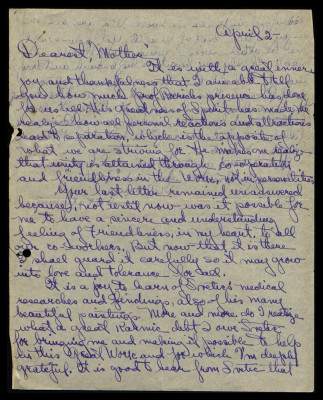 April 2 —
Dearest "Mother"
It is with a great inner
joy and thankfulness that I am able to tell
you how much Prof. Roerichs presence has done
for us all. His greatness of Spirit has made me
realize how all personal reactions and attractions
lead to separation, which is the opposite of
what we are striving for. He makes me realize
that unity is attained through co-operation
and friendliness in the Work, not in personalities.
Your last letter remained unanswered
because, not until now was it possible for
me to have a sincere and understanding
feeling of friendliness, in my heart, to all
our co-workers. But now that it is there
I shall guard it carefully so it may grow
into love and tolerance for all.
It is a joy to learn of Svetic's medical
researches and findings, also of his many
beautiful paintings. More and more do I realize
what a great Karmic debt I owe Svetic
for bringing me and making it possible to help
in this great Work and for which I'm deeply
grateful. It is good to hear from Svetic that